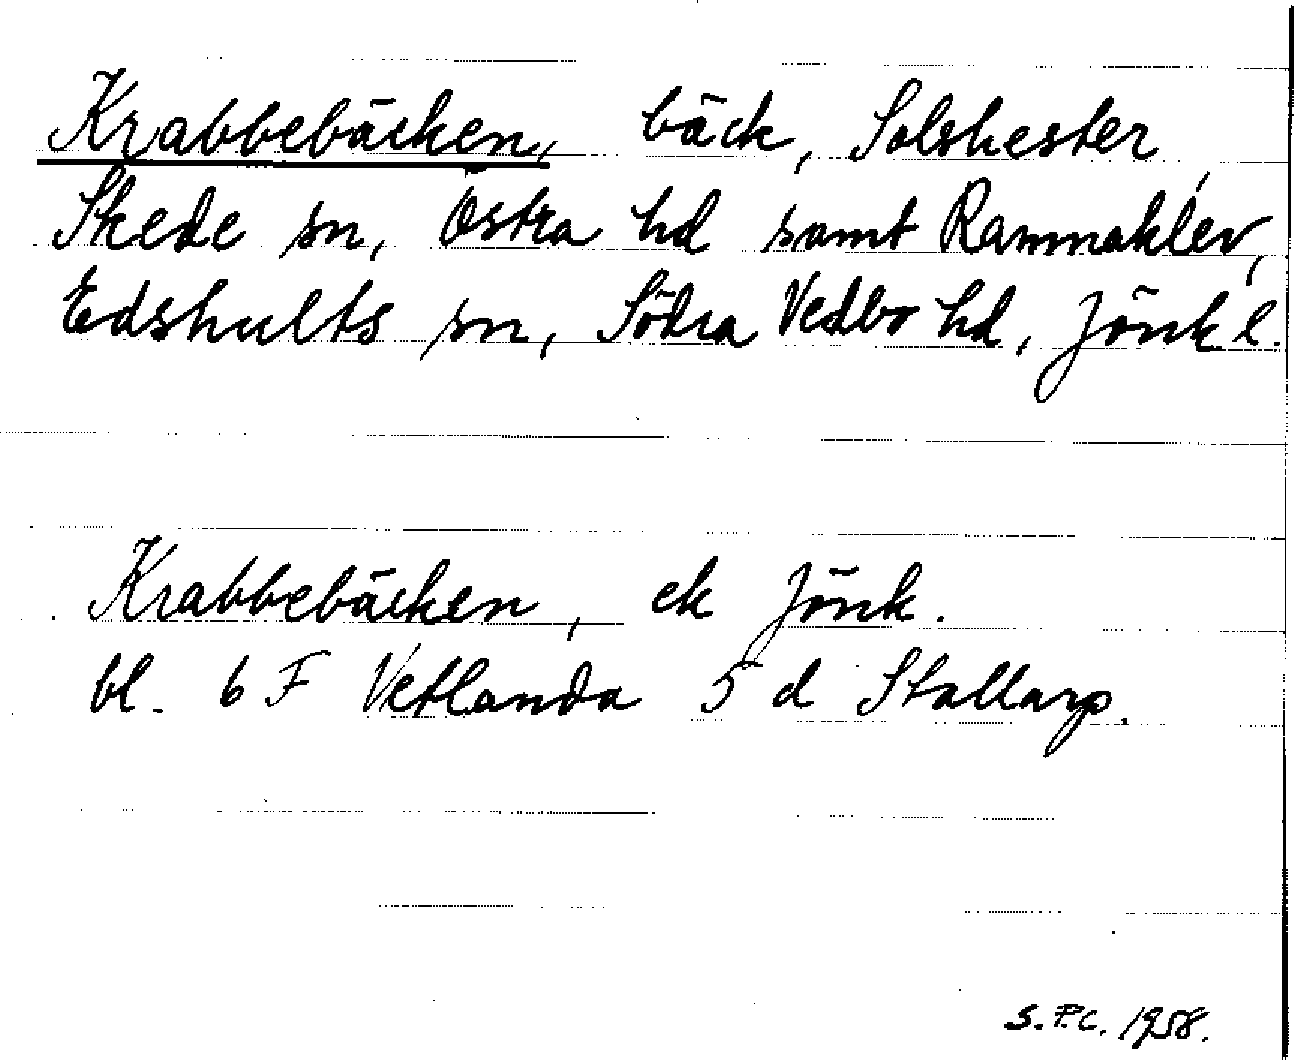 Krabbebäcken, bäck, Solskester,
Skede sn, Östra hd samt Rammaklev,
Edshults sn, Södra Vedbo hd, Jönk l.
Krabbebäcken, ek Jönk.
bl. 6 F Vetlanda 5 d Stallarp.
S.F.C. 1958.